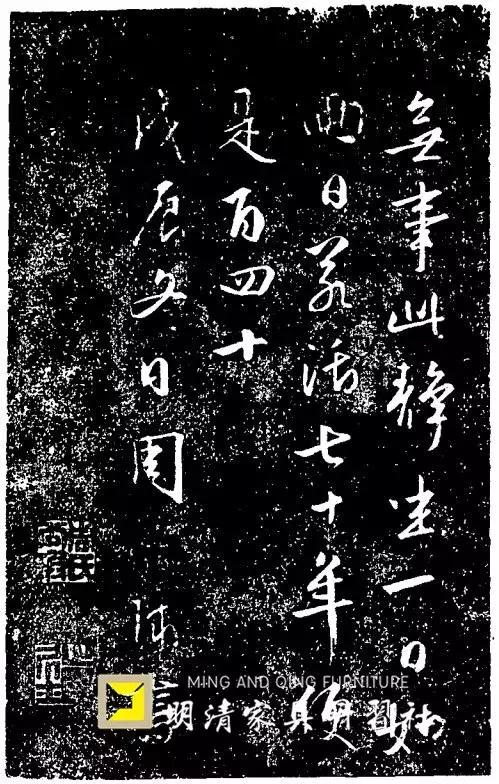 無事此靜坐一日如
兩日若活七十年便
是百四十
戊辰冬日周
MING AND QING FURNITURE
明清家具研習社